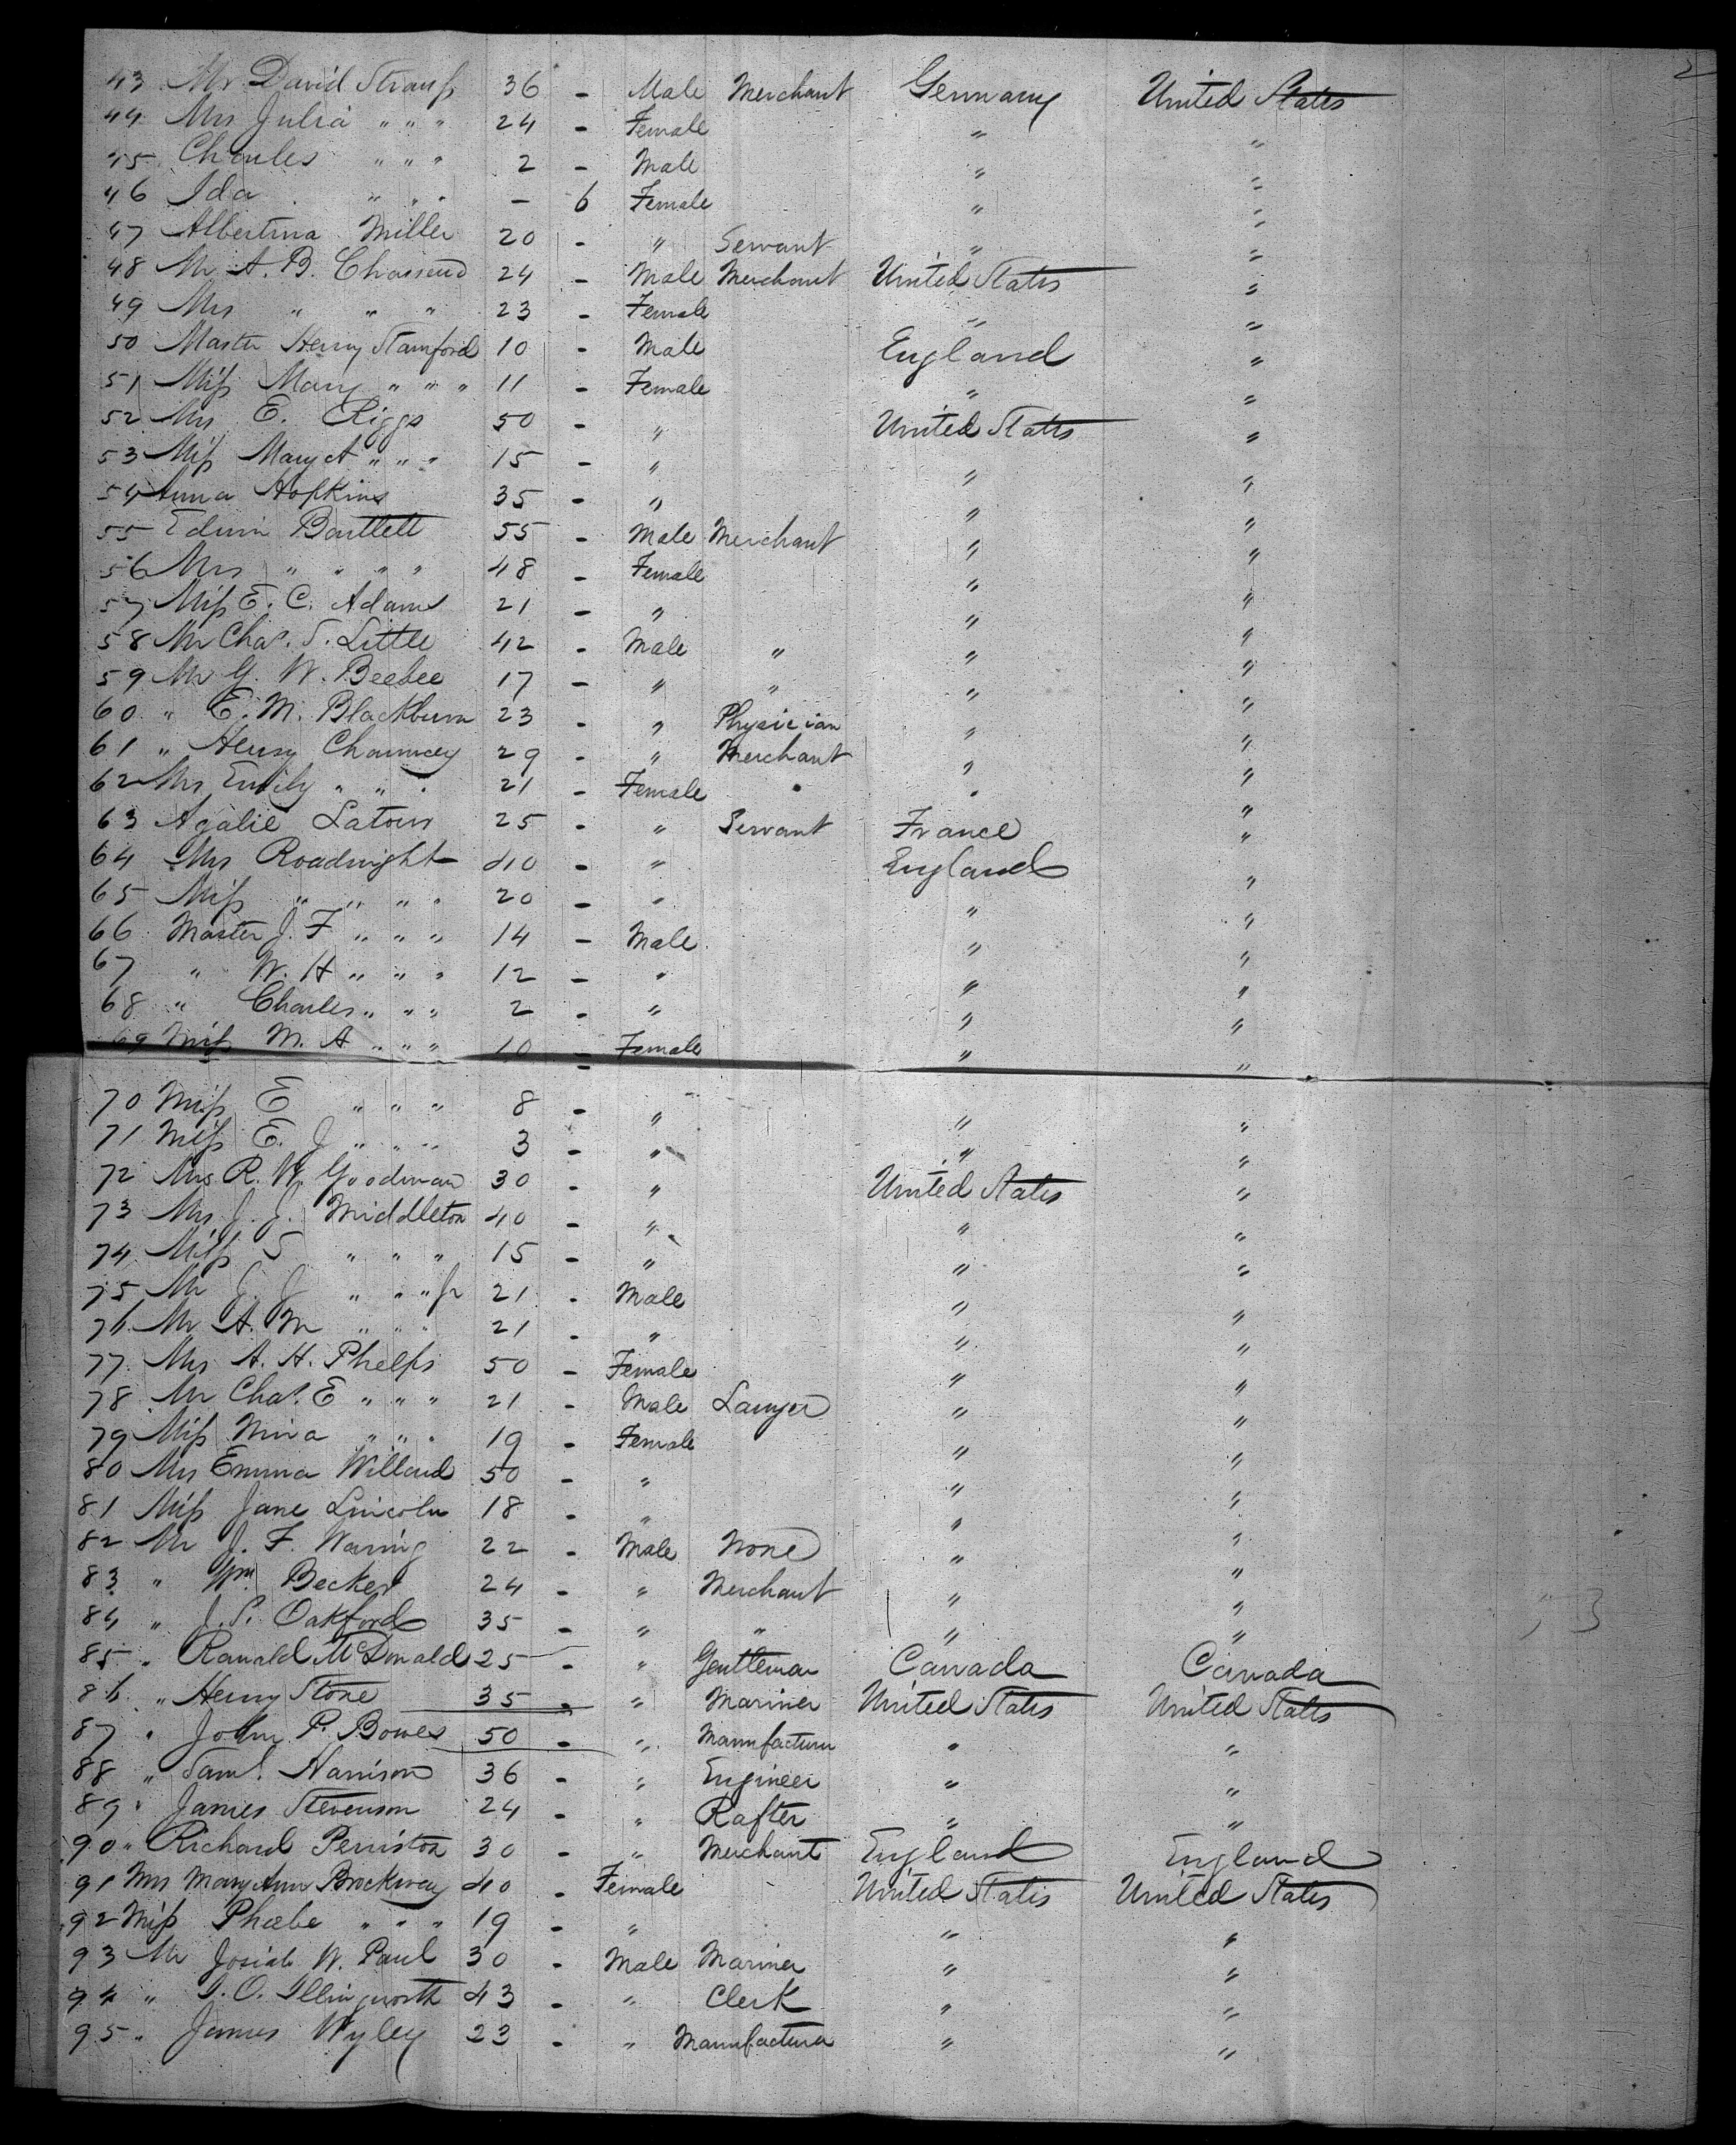 2
43 Mr David Strauss 36 - Male Merchant Germany United States
44 Mrs Julia " " " 24 - Female " "
45 Charles " " " 2 - Male " "
46 Ida " " " - 6 Female " "
47 Albertina Miller 20 - " Servant " "
48 Mr A. B. 24 - Male Merchant United States "
49 Mrs " " " 23 - Female " "
50 Master Henry Stamford 10 - Male England "
51 Miss Mary " " " 11 - Female " "
52 Mrs E. Riggs 50 - " United States "
53 Miss Mary A " " " 15 - " " "
54 Anna Hopkins 35 - " " "
55 Edwin Bartlett 55 - Male Merchant " "
56 Mrs " " " " 48 - Female " "
57 Miss E. C. Adams 21 - " " "
58 Mr Chas. S. Little 42 - Male " " "
59 Mr G. W. Beebee 17 - " " " "
60 " E. M. Blackburn 23 - " Physician " "
61 " Henry Chauncey 29 - " Merchant " "
62 Mrs Emily " " " 21 - Female " " "
63 Agalie Latour 25 - " Servant France "
64 Mrs Roadnight 40 - " England "
65 Miss " " " " 20 - " " "
66 Master J. F " " " 14 - Male " "
67 " W. H " " " 12 - " " "
68 " Charles " " " 2 - " " "
69 Miss M. A " " " 10 - Female " "
70 Miss E " " " 8 - " " "
71 Miss E. J " " " 3 - " " "
72 Mrs R. W. Goodman 30 - " United States "
73 Mrs J. J. Middleton 40 - " " "
74 Miss S " " " 15 - " " "
75 Mr J. J " " " Jr 21 - Male " "
76 Mr A. M " " " 21 - " " "
77 Mrs A. H. Phelps 50 - Female " "
78 Mr Chas. E " " " 21 - Male Lawyer " "
79 Miss Nina " " " 19 - Female " "
80 Mrs Emma Willard 50 - " " "
81 Miss Jane Lincoln 18 - " " "
82 Mr J. F. Waring 22 - Male None " "
83 " Wm. Becker 24 - " Merchant " "
84 " J. S. Oakford 35 - " " " "
85 " Ranald McDonald 25 - " Gentleman Canada Canada
86 " Henry Stone 35 - " Mariner United States United States
87 " John P. Bowes 50 - " Manufacturer " "
88 " Saml. Harrison 36 - " Engineer " "
89 " James Stevenson 24 - " Rafter " "
90 " Richard Perriston 30 - " Merchant England England
91 Mrs Mary Ann Brockway 40 - Female United States United States
92 Miss Phœbe " " " 19 - " " "
93 Mr Josiah W. Paul 30 - Male Mariner " "
94 " Illingworth 43 - " Clerk " "
95 " James Wyley 23 - " Manufacturer " "